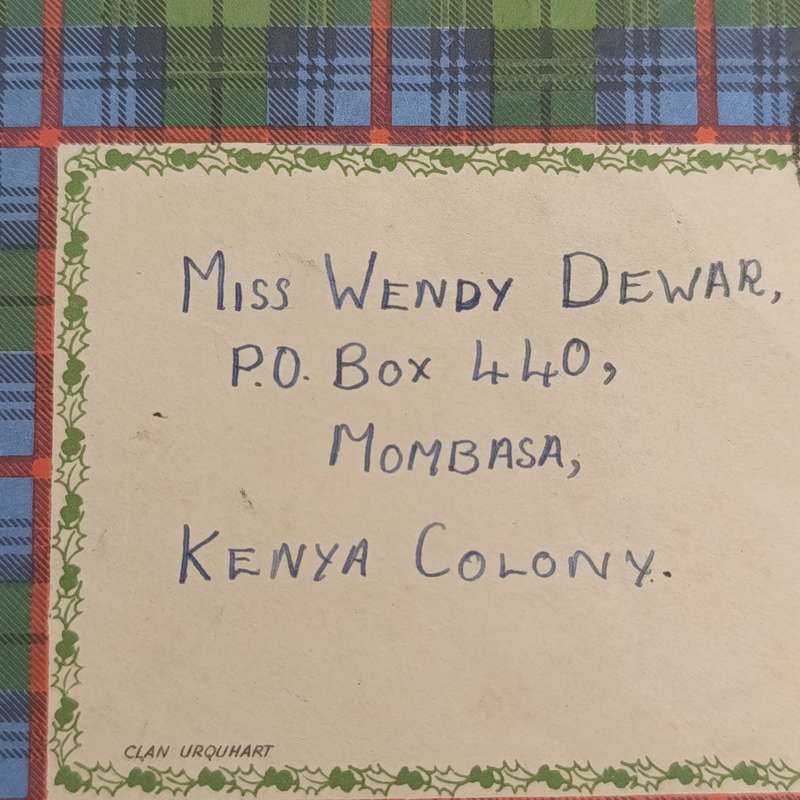 Miss Wendy Dewar,
P.O. Box 440,
Mombasa,
Kenya Colony.
CLAN URQUHART